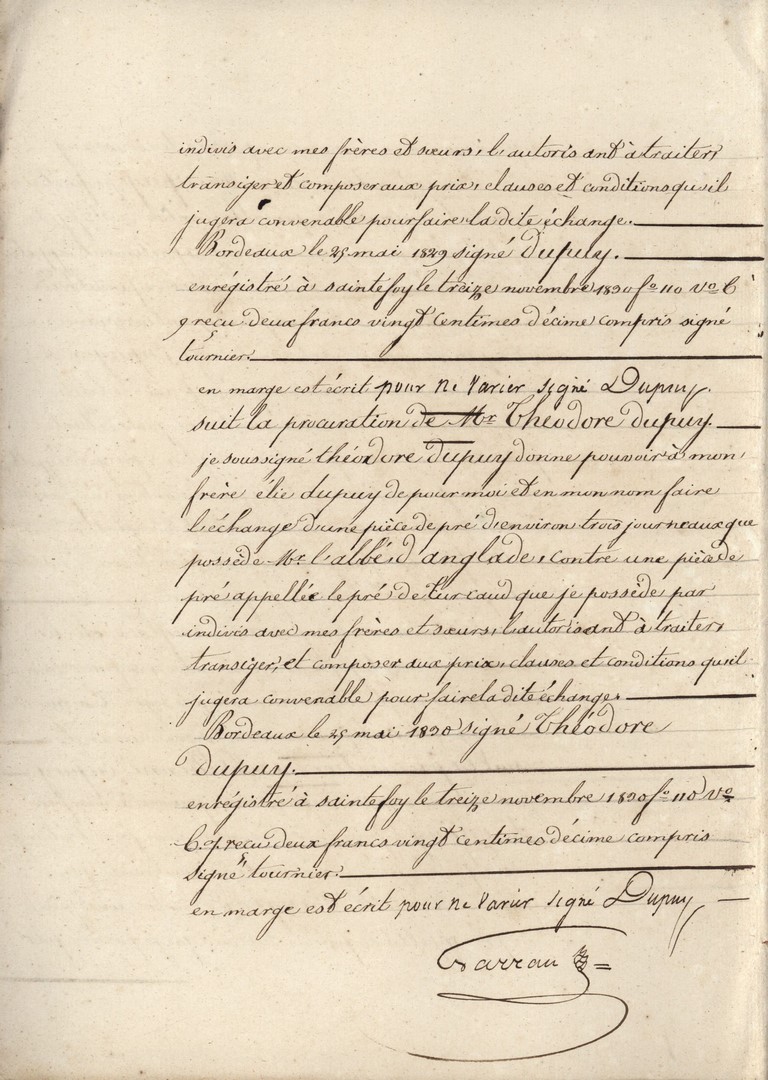 indivis avec mes frères et sœurs, l'autorisant à traiter,
transiger et composer aux prix, clauses et conditions qu'il
jugera convenable pour faire la dite échange.
Bordeaux le 25 mai 1829 signé Dupuy.
enrégistré à sainte foy le treize novembre 1830 fo 110 Vo C
9 reçu deux francs vingt centimes décime compris signé
tournier.
en marge est écrit pour ne Varier signé Dupuy.
suit la procuration de Mr Théodore dupuy.
je soussigné théodore dupuy donne pouvoir à mon
frère élie dupuy de pour moi et en mon nom faire
l'échange d'une pièce de pré d'environ trois journeaux que
possède Mr l'abbé d'anglade, contre une pièce de
pré appellée le pré de turcaud que je possède par
indivis avec mes frères et sœurs, l'autorisant à traiter,
transiger, et composer aux prix, clauses et conditions qu'il
jugera convenable pour faire la dite échange.
Bordeaux le 25 mai 1830 signé Théodore
dupuy.
enrégistré à sainte foy le treize novembre 1830 fo 110 Vo
C. 9. reçu deux francs vingt centimes décime compris
signé tournier.
en marge est écrit pour ne Varier signé Dupuy